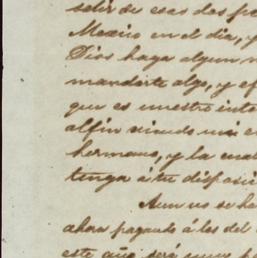 salir de esas dos
Mexico en el dia, y
Dios haga algun
mandarte algo, y
que es nuestro
alfin siendo mi
hermano, y la
tenga á tu
Aun no se ha
ahora pagando á los del
este año será